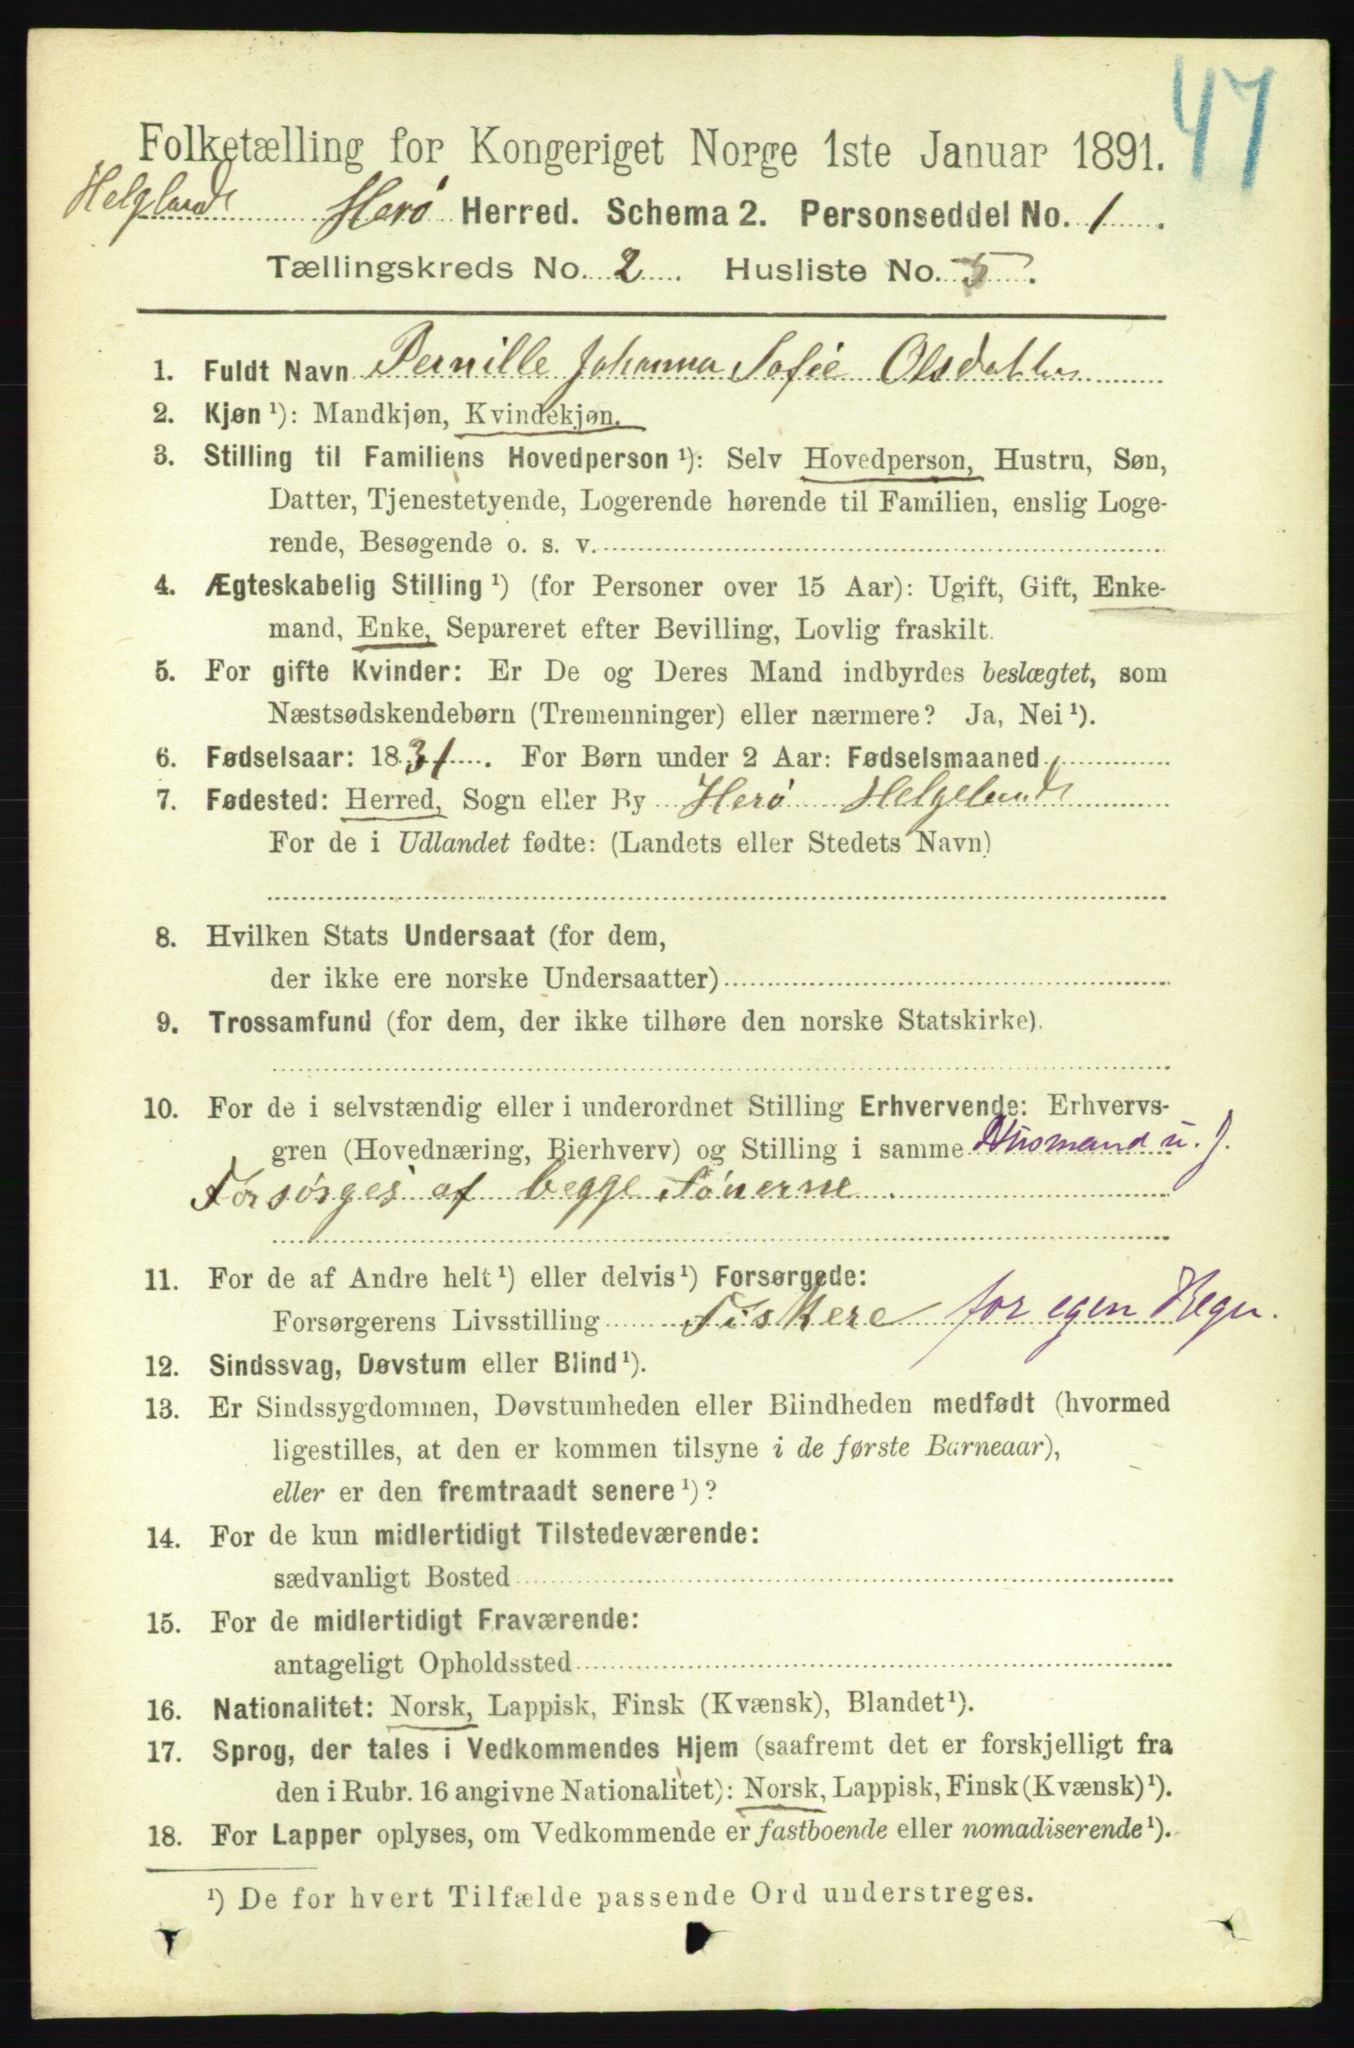 47
Folketælling for Kongeriget Norge 1ste Januar 1891.
Helgelands Herø Herred. Schema 2. Personseddel No. 1.
Tællingskreds No. 2. Husliste No. 5.
1. Fuldt Navn Pernille Johanna Sofie Olsdatter
2. Kjøn ¹): Mandkjøn, Kvindekjøn.
3. Stilling til Familiens Hovedperson ¹): Selv Hovedperson, Hustru, Søn,
Datter, Tjenestetyende, Logerende hørende til Familien, enslig Loge-
rende, Besøgende o. s. v.
4. Ægteskabelig Stilling ¹) (for Personer over 15 Aar): Ugift, Gift, Enke-
mand, Enke, Separeret efter Bevilling, Lovlig fraskilt.
5. For gifte Kvinder: Er De og Deres Mand indbyrdes beslægtet, som
Næstsødskendebørn (Tremenninger) eller nærmere? Ja, Nei ¹).
6. Fødselsaar: 1831. For Børn under 2 Aar: Fødselsmaaned
7. Fødested: Herred, Sogn eller By Herø Helgelands
For de i Udlandet fødte: (Landets eller Stedets Navn)
8. Hvilken Stats Undersaat (for dem,
der ikke ere norske Undersaatter)
9. Trossamfund (for dem, der ikke tilhøre den norske Statskirke).
10. For de i selvstændig eller i underordnet Stilling Erhvervende: Erhvervs-
gren (Hovednæring, Bierhverv) og Stilling i samme Husmand u. J.
Forsørges af begge Sønerne.
11. For de af Andre helt ¹) eller delvis ¹) Forsørgede:
Forsørgerens Livsstilling Fiskere for egen Regn.
12. Sindssvag, Døvstum eller Blind ¹).
13. Er Sindssygdommen, Døvstumheden eller Blindheden medfødt (hvormed
ligestilles, at den er kommen tilsyne i de første Barneaar),
eller er den fremtraadt senere ¹)?
14. For de kun midlertidigt Tilstedeværende:
sædvanligt Bosted
15. For de midlertidigt Fraværende:
antageligt Opholdssted
16. Nationalitet: Norsk, Lappisk, Finsk (Kvænsk), Blandet ¹).
17. Sprog, der tales i Vedkommendes Hjem (saafremt det er forskjelligt fra
den i Rubr. 16 angivne Nationalitet): Norsk, Lappisk, Finsk (Kvænsk) ¹).
18. For Lapper oplyses, om Vedkommende er fastboende eller nomadiserende ¹).
¹) De for hvert Tilfælde passende Ord understreges.